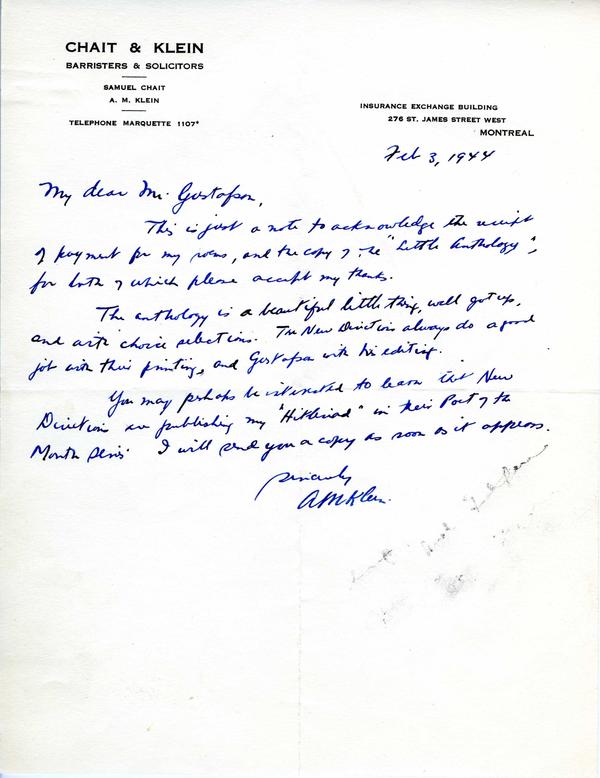 CHAIT & KLEIN
BARRISTERS & SOLICITORS
SAMUEL CHAIT
A. M. KLEIN
TELEPHONE MARQUETTE 1107*
INSURANCE EXCHANGE BUILDING
276 ST. JAMES STREET WEST
MONTREAL
Feb 3, 1944
My dear Mr. Gustafson,
This is just a note to acknowledge the receipt
of payment for my poems, and the copy of the "Little Anthology",
for both of which please accept my thanks.
The anthology is a beautiful little thing, well got up,
and with choice selections. The New Directions always do a good
job with their printing, and Gustafson with his editing.
You may perhaps be interested to learn that New
Directions are publishing my "Hitleriad" in their Poet of the
Month series. I will send you a copy as soon as it appears.
Sincerely
A M Klein.